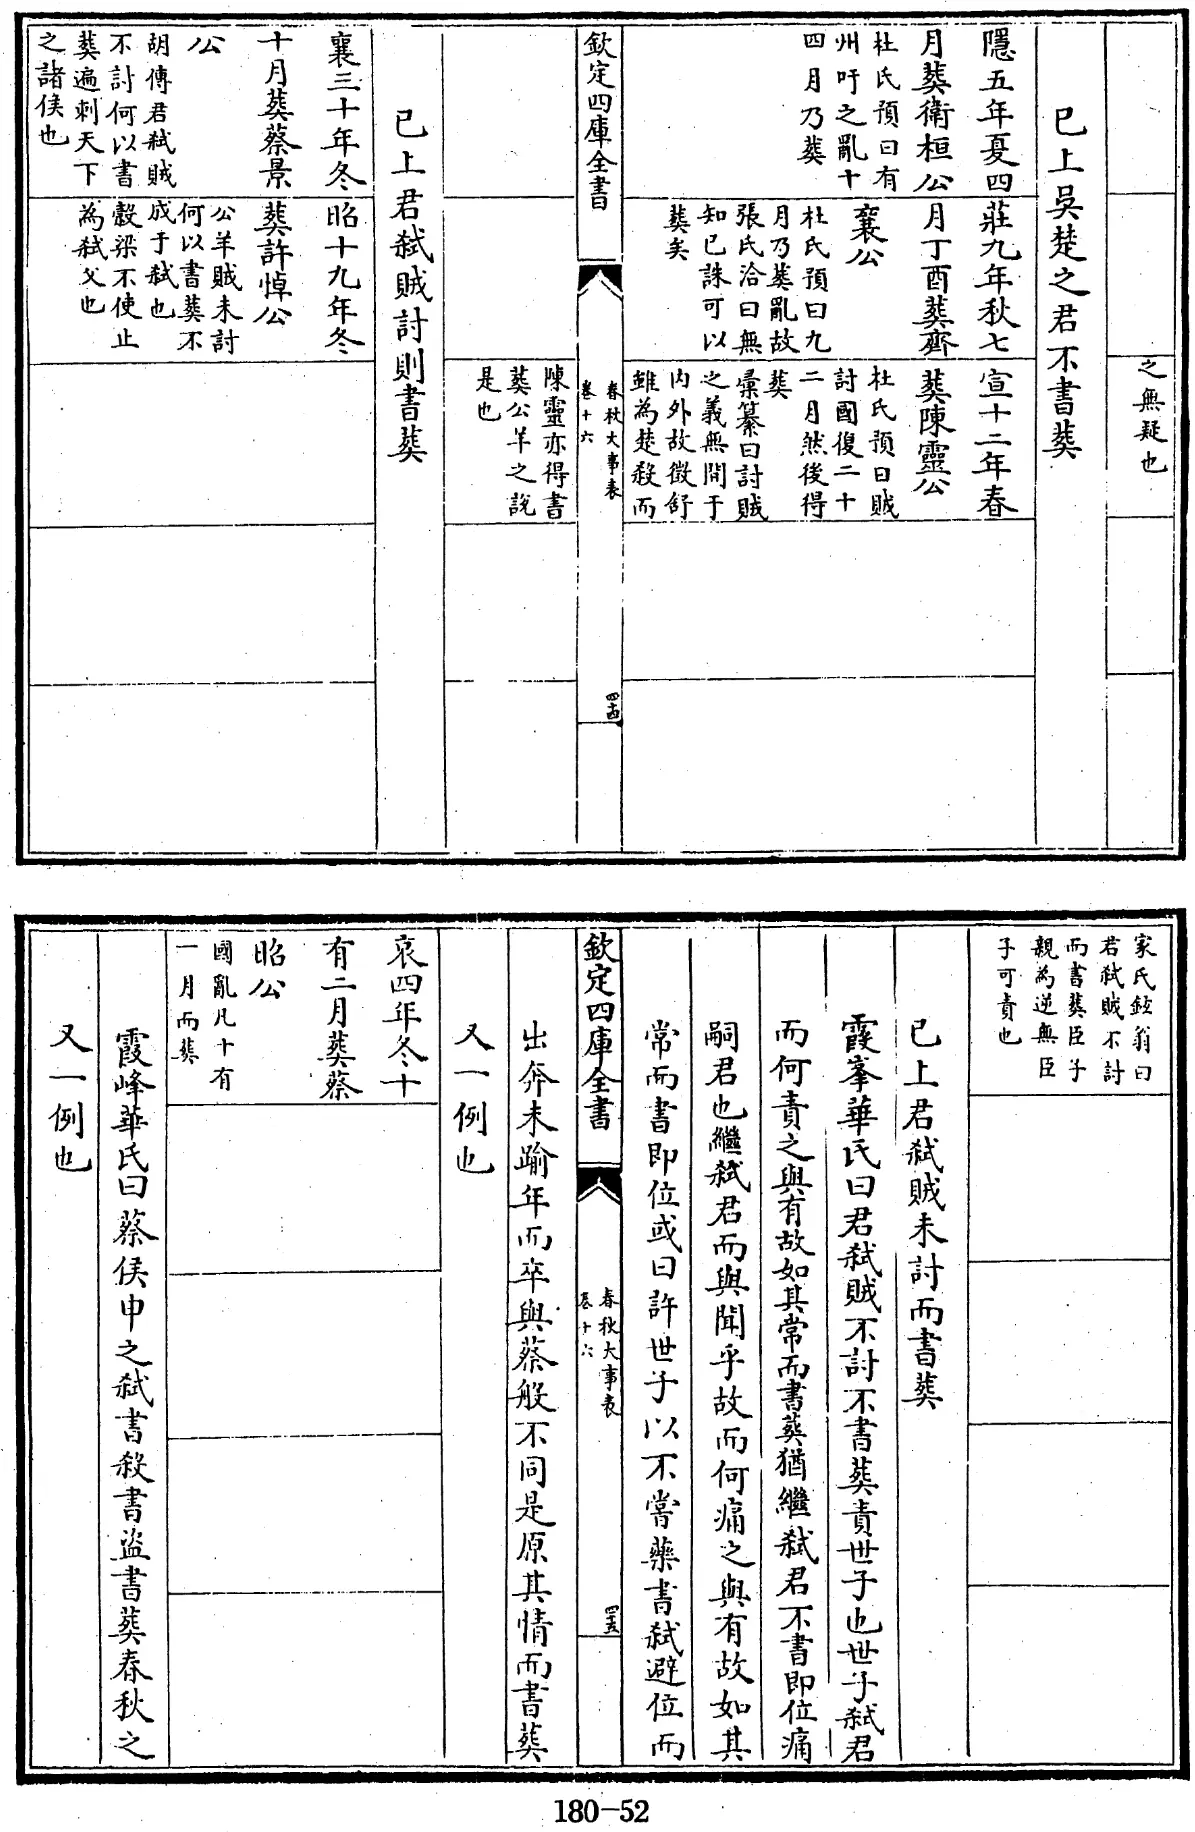 之無疑也
已上吳楚之君不書葬
隱五年夏四
月葬衛桓公
杜氏預曰有
州吁之亂十
四月乃葬
莊九年秋七
月丁酉葬齊
襄公
杜氏預曰九
月乃葬亂故
張氏洽曰無
知已誅可以
葬矣
宣十二年春
葬陳靈公
杜氏預曰賊
討國復二十
二月然後得
葬
彙纂曰討賊
之義無間于
內外故徵舒
雖為楚殺而
欽定四庫全書
春秋大事表
卷十六
四十四
陳靈亦得書
葬公羊之說
是也
已上君弒賊討則書葬
襄三十年冬
十月葬蔡景
公
胡傳君弒賊
不討何以書
葬遍刺天下
之諸侯也
昭十九年冬
葬許悼公
公羊賊未討
何以書葬不
成于弒也
穀梁不使止
為弒父也
家氏鉉翁曰
君弒賊不討
而書葬臣子
親為逆無臣
子可責也
已上君弒賊未討而書葬
霞峯華氏曰君弒賊不討不書葬責世子也世子弒君
而何責之與有故如其常而書葬猶繼弒君不書即位痛
嗣君也繼弒君而與聞乎故而何痛之與有故如其
常而書即位或曰許世子以不嘗藥書弒避位而
欽定四庫全書
春秋大事表
卷十六
四十五
出奔未踰年而卒與蔡般不同是原其情而書葬
又一例也
哀四年冬十
有二月葬蔡
昭公
國亂凡十有
一月而葬
霞峰華氏曰蔡侯申之弒書殺書盜書葬春秋之
又一例也
180-52